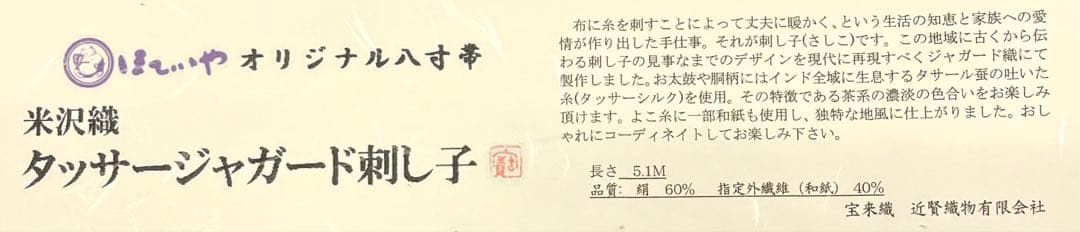 ほていや オリジナル八寸帯
米沢織
タッサージャガード刺し子
布に糸を刺すことによって丈夫に暖かく、という生活の知恵と家族への愛
情が作り出した手仕事。それが刺し子(さしこ)です。この地域に古くから伝
わる刺し子の見事なまでのデザインを現代に再現すべくジャガード織にて
製作しました。お太鼓や胴柄にはインド全域に生息するタサール蚕の吐いた
糸(タッサーシルク)を使用。その特徴である茶系の濃淡の色合いをお楽しみ
頂けます。よこ糸に一部和紙も使用し、独特な地風に仕上がりました。おし
ゃれにコーディネイトしてお楽しみ下さい。
長さ 5.1M
品質: 絹 60% 指定外繊維（和紙） 40%
宝来織 近賢織物有限会社